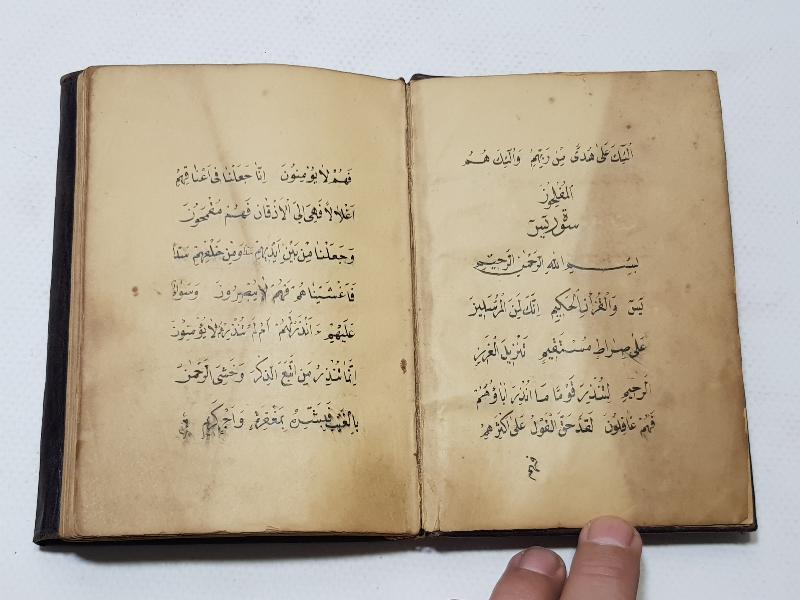 اُلٰئِكَ عَلٰى هُدًى مِنْ رَبِّهِمْ وَاُلٰئِكَ هُمُ
الْمُفْلِحُونَ
سورة يس
بِسْمِ اللهِ الرَّحْمٰنِ الرَّحِيمِ
يٰسٓ وَالْقُرْاٰنِ الْحَكِيمِ اِنَّكَ لَمِنَ الْمُرْسَلِينَ
عَلٰى صِرَاطٍ مُسْتَقِيمٍ تَنْزِيلَ الْعَزِيزِ
الرَّحِيمِ لِتُنْذِرَ قَوْمًا مَا اُنْذِرَ اٰبَاؤُهُمْ
فَهُمْ غَافِلُونَ لَقَدْ حَقَّ الْقَوْلُ عَلٰى اَكْثَرِهِمْ
فهم
فَهُمْ لَا يُؤْمِنُونَ اِنَّا جَعَلْنَا فِى اَعْنَاقِهِمْ
اَغْلَالًا فَهِىَ اِلَى الْاَذْقَانِ فَهُمْ مُقْمَحُونَ
وَجَعَلْنَا مِنْ بَيْنِ اَيْدِيهِمْ سَدًّا وَمِنْ خَلْفِهِمْ سَدًّا
فَاَغْشَيْنَاهُمْ فَهُمْ لَا يُبْصِرُونَ وَسَوَاءٌ
عَلَيْهِمْ ءَاَنْذَرْتَهُمْ اَمْ لَمْ تُنْذِرْهُمْ لَا يُؤْمِنُونَ
اِنَّمَا تُنْذِرُ مَنِ اتَّبَعَ الذِّكْرَ وَخَشِىَ الرَّحْمٰنَ
بِالْغَيْبِ فَبَشِّرْهُ بِمَغْفِرَةٍ وَاَجْرٍ كَرِيمٍ